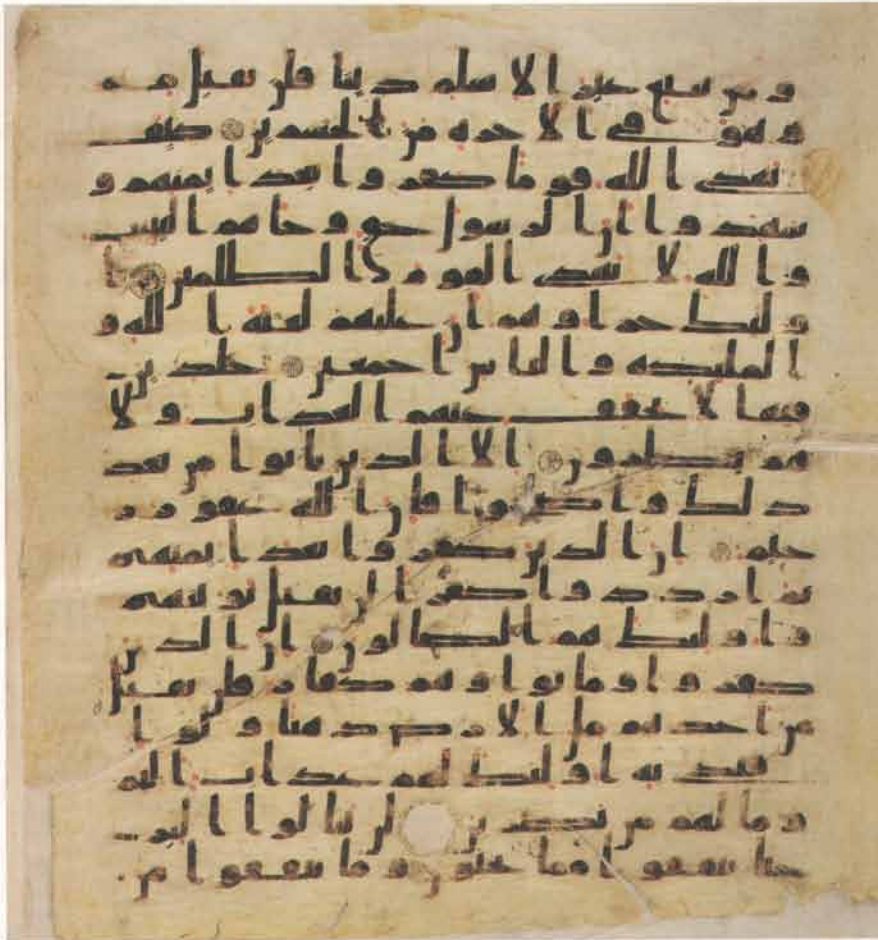 ومن يبتغ غير الاسلم دينا فلن يقبل منه
وهو في الاخرة من الخسرين كيف
يهدي الله قوما كفروا بعد ايمنهم و
شهدوا ان الرسول حق وجاهم البينت
والله لا يهدي القوم الظلمين ا
ولئك جزاوهم ان عليهم لعنة الله و
الملئكة والناس اجمعين خلدين
فيها لا يخفف عنهم العذاب ولا
هم ينظرون الا الذين تابوا من بعد
ذلك واصلحوا فان الله غفور ر
حيم ان الذين كفروا بعد ايمنهم
ثم ازدادوا كفرا لن تقبل توبتهم
واولئك هم الضالون ان الذين
كفروا وماتوا وهم كفار فلن يقبل
من احدهم مل الارض ذهبا ولو ا
فتدى به اولئك لهم عذاب اليم
وما لهم من نصرين لن تنالوا البر
حتا تنفقوا مما تحبون وما تنفقوا من